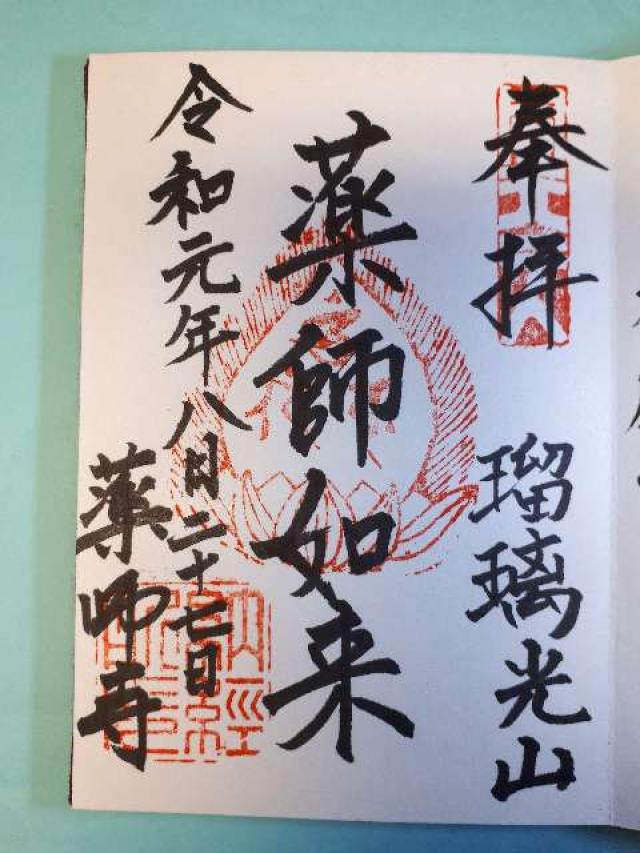 奉拝
瑠璃光山
薬師如来
令和元年八月二十七日
薬師寺